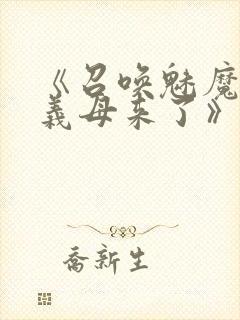 《召唤魅魔
義母来了》
喬新生